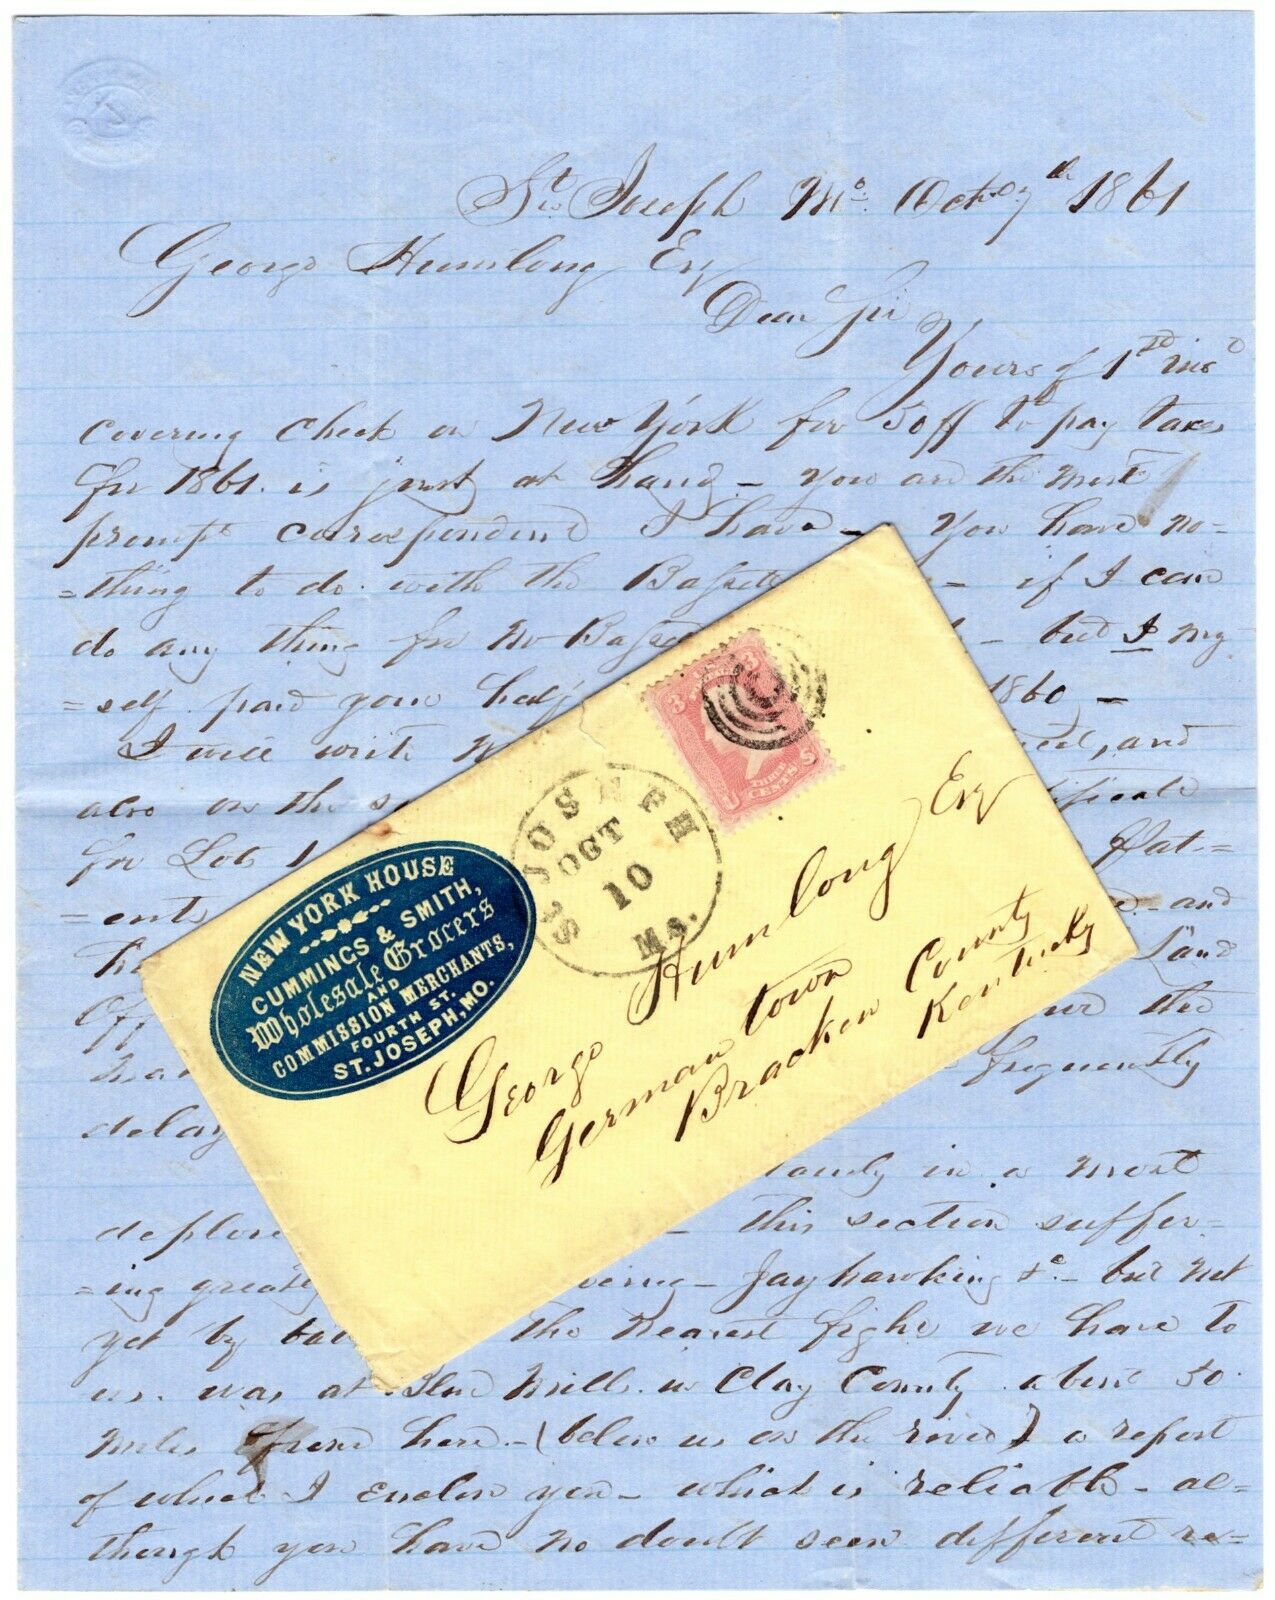 St. Joseph Mo. Oct. 7th 1861
George Humlong Esq
Dear Sir
Yours of 1st inst
covering check on New York for 50 to pay taxes
for 1861. is just at hand - you are the most
prompt correspondent I have - You have no-
=thing to do with the Bassett - if I can
do any thing for Mr Bassett - but I my
=self paid your half 1860 -
I will write and
also on the
for Lots 1 Pat-
=ents and
Land
Off the
frequently
delay
in a most
deplor - this section suffer-
=ing greatly - Jayhawking &c - but not
yet by bat The nearest fight we have to
us. was at Blue Mills in Clay County about 50
miles from here - (below us on the river) a report
of which I enclose you - which is reliable - al-
though you have no doubt seen different re-
3 3
THREE
CENTS
ST. JOSEPH
OCT
10
MO.
NEW YORK HOUSE
CUMMINGS & SMITH,
Wholesale Grocers
AND
COMMISSION MERCHANTS,
FOURTH ST.
ST. JOSEPH, MO.
George Humlong Esq
Germantown
Bracken County
Kentucky